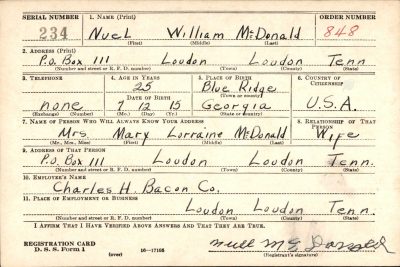 SERIAL NUMBER 1. NAME (Print) ORDER NUMBER
234 Nuel William McDonald 848
(First) (Middle) (Last)
2. ADDRESS (Print)
P.O. Box 111 Loudon Loudon Tenn
(Number and street or R. F. D. number) (Town) (County) (State)
3. TELEPHONE 4. AGE IN YEARS 5. PLACE OF BIRTH 6. COUNTRY OF CITIZENSHIP
25 Blue Ridge
DATE OF BIRTH (Town or county)
none 7 12 15 Georgia U.S.A.
(Exchange) (Number) (Mo.) (Day) (Yr.) (State or country)
7. NAME OF PERSON WHO WILL ALWAYS KNOW YOUR ADDRESS 8. RELATIONSHIP OF THAT PERSON
Mrs. Mary Lorraine McDonald Wife
(Mr., Mrs., Miss) (First) (Middle) (Last)
9. ADDRESS OF THAT PERSON
P.O. Box 111 Loudon Loudon Tenn.
(Number and street or R. F. D. number) (Town) (County) (State)
10. EMPLOYER'S NAME
Charles H. Bacon Co.
11. PLACE OF EMPLOYMENT OR BUSINESS
Loudon Loudon Tenn.
(Number and street or R. F. D. number) (Town) (County) (State)
I AFFIRM THAT I HAVE VERIFIED ABOVE ANSWERS AND THAT THEY ARE TRUE.
REGISTRATION CARD
D. S. S. Form 1 (over) 16—17105 (Registrant's signature)